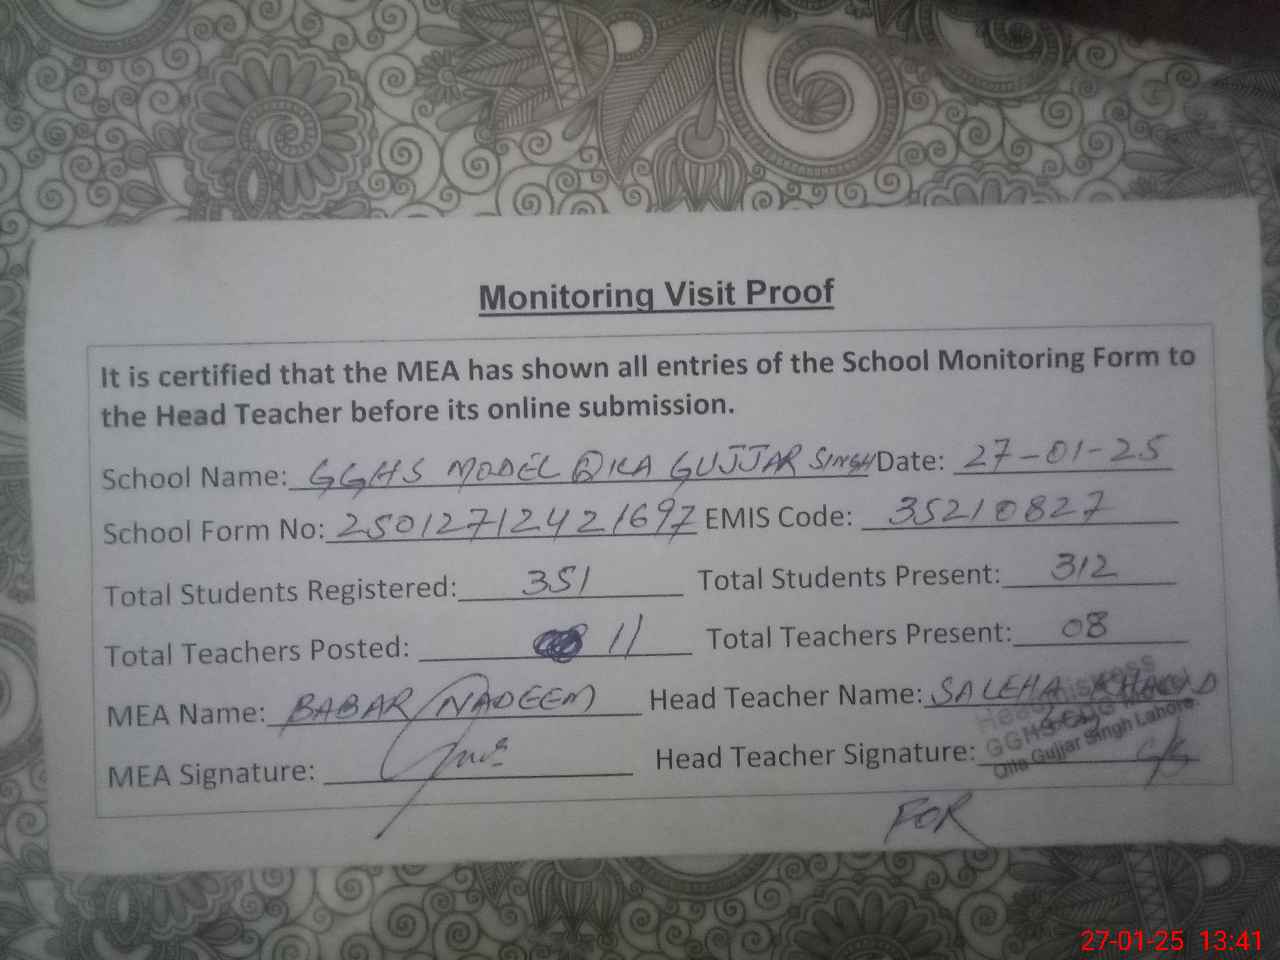 Monitoring Visit Proof
It is certified that the MEA has shown all entries of the School Monitoring Form to
the Head Teacher before its online submission.
School Name: GGHS MODEL QILA GUJJAR SINGH Date: 27-01-25
School Form No: 25012712421697 EMIS Code: 35210827
Total Students Registered: 351 Total Students Present: 312
Total Teachers Posted: 11 Total Teachers Present: 08
MEA Name: BABAR NADEEM Head Teacher Name: SALEHA KHALID
Headmistress
MEA Signature: Head Teacher Signature:
GGHS
Qila Gujjar Singh Lahore.
FOR
27-01-25 13:41